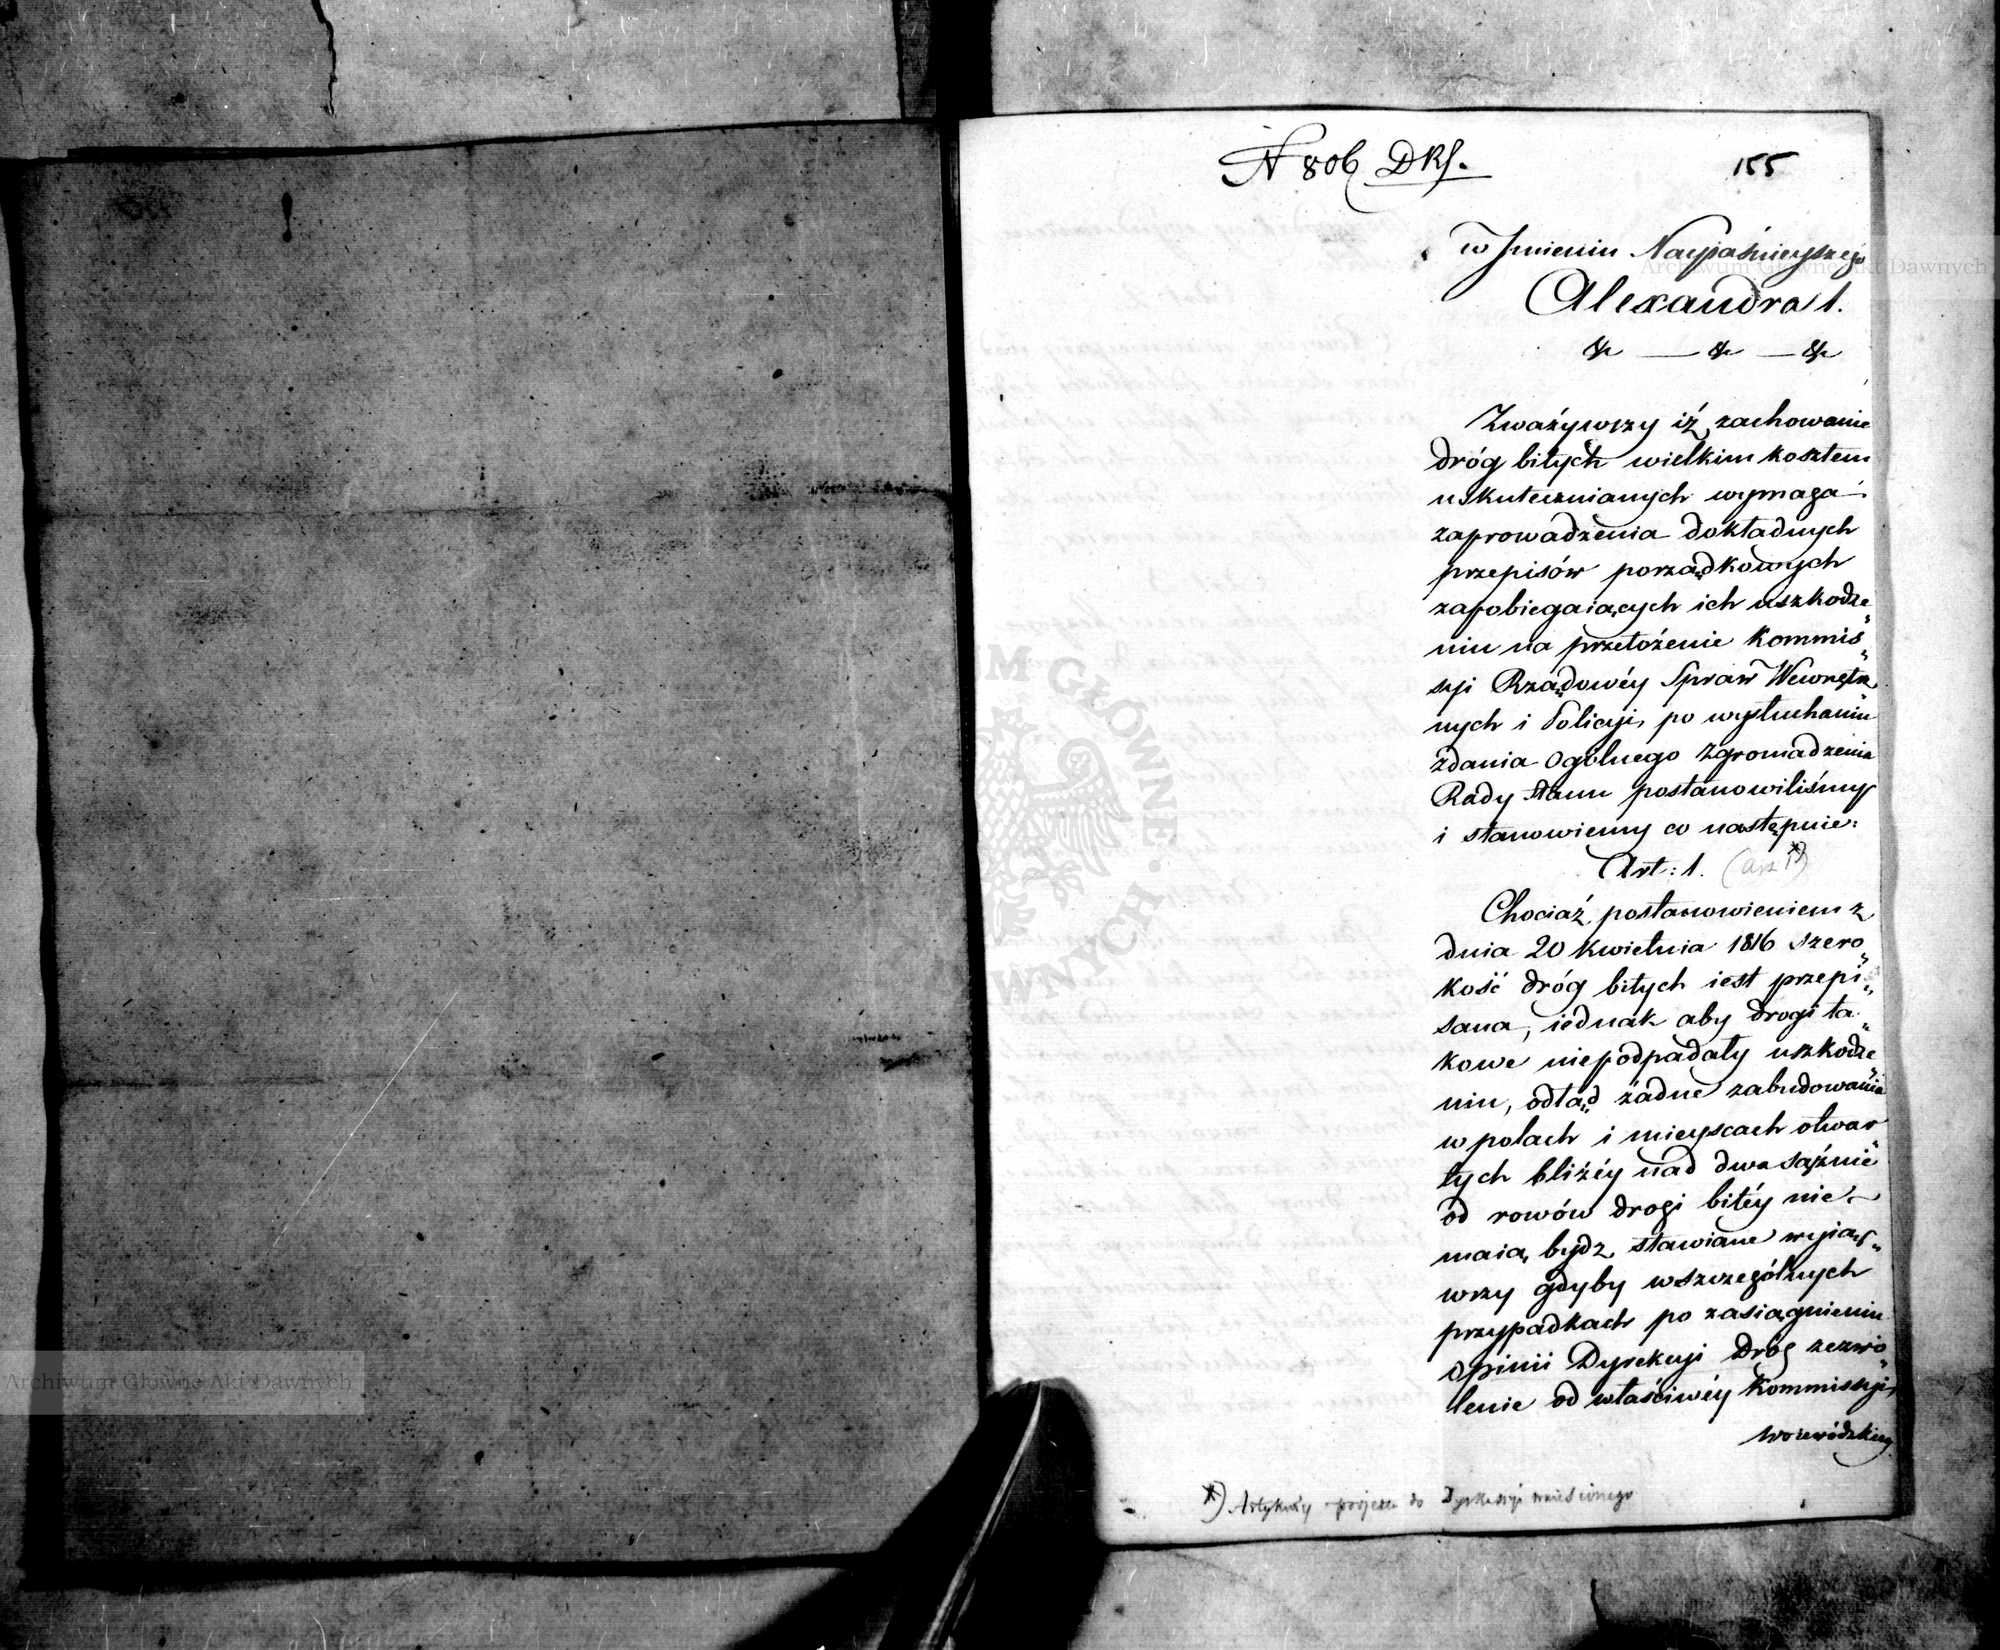 N 806 DRS.
155
w Jmieniu Nayjaśnieyszego
Alexandra 1.
&c — &c — &c
Zważywszy iż zachowanie
dróg bitych wielkim kosztem
uskutecznianych wymaga
zaprowadzenia dokładnych
przepisów porządkowych
zapobiegaiących ich uszkodze„
niu na przełożenie Kommis„
syi Rządowéy Spraw Wewnętrz„
nych i Policyi, po wysłuchaniu
zdania Ogólnego Zgromadzenia
Rady Stanu postanowiliśmy
i stanowiemy co następuie:
Art: 1. (Art 1 *)
Chociaż postanowieniem z
dnia 20 Kwietnia 1816 szero„
kość dróg bitych iest przepi„
sana, iednak aby drogi ta„
kowe niepodpadały uszkodze„
niu, odtąd żadne zabudowania
w polach i mieyscach otwar„
tych bliżéy nad dwa sążnie
od rowów drogi bitéy nie
maią bydz stawiane wyią„
wszy gdyby w szczególnych
przypadkach po zasiągnieniu
opinii Dyrekcyi Dróg zezwo„
lenie od właściwéy Kommissyi
Woiewódzkiey
*) Artykuły projektu do Dyskussyi wniesionego
Archiwum Główne Akt Dawnych
Archiwum Główne Akt Dawnych
M GŁÓWNE · WNYCH ·